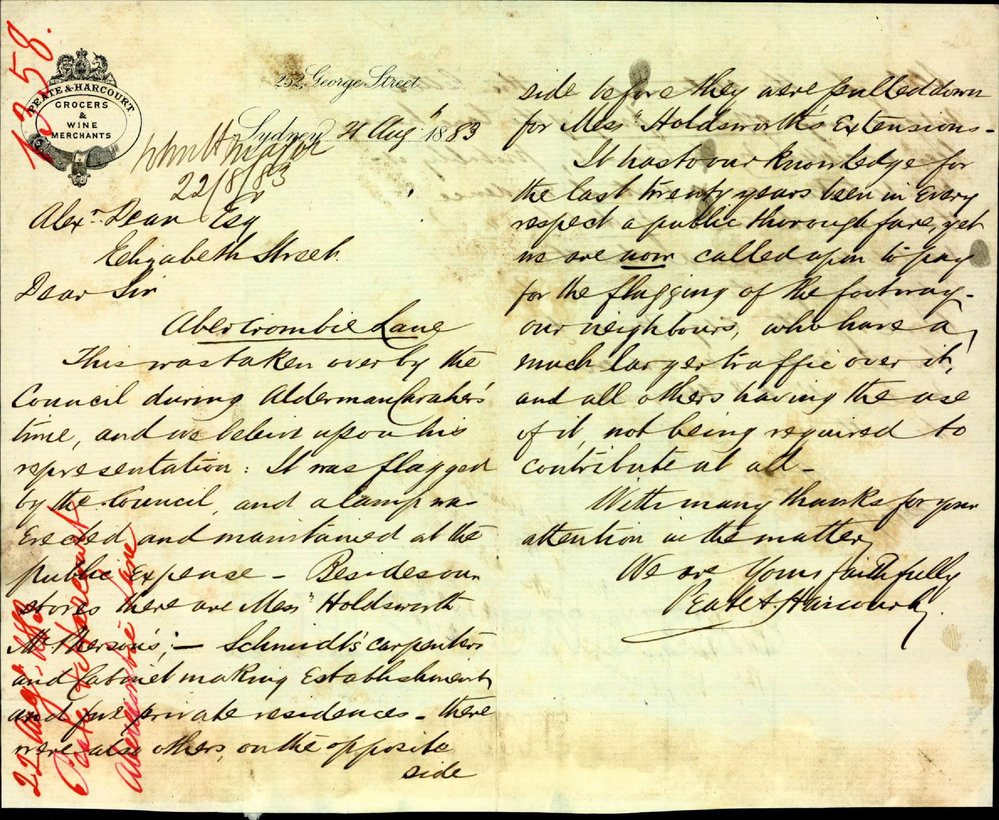 1358.
PEATE & HARCOURT
GROCERS
&
WINE
MERCHANTS
252, George Street
Sydney 21 Augt 1883
22/8/83
Alexr. Dean Esq
Elizabeth Street
Dear Sir
Abercrombie Lane
This was taken over by the
Council during Alderman Caraher's
time, and we believe upon his
representation: It was flagged
by the Council, and a lamp was
Erected and maintained at the
public Expense – Besides our
stores there are Messrs Holdsworth
McPherson's; – Schmidt's carpenters
and Cabinet making Establishment,
and five private residences – there
were also others, on the opposite
side
side before they were pulled down
for Messrs Holdsworth's Extensions –
It has to our knowledge for
the last twenty years been in Every
respect a public thoroughfare, yet
we are now called upon to pay
for the flagging of the footway –
our neighbours, who have a
much larger traffic over it,
and all others having the use
of it, not being required to
contribute at all –
With many thanks for your
attention in the matter,
We are Yours faithfully
Peate & Harcourt
22 Aug. 1883
Peate & Harcourt
Abercrombie Lane